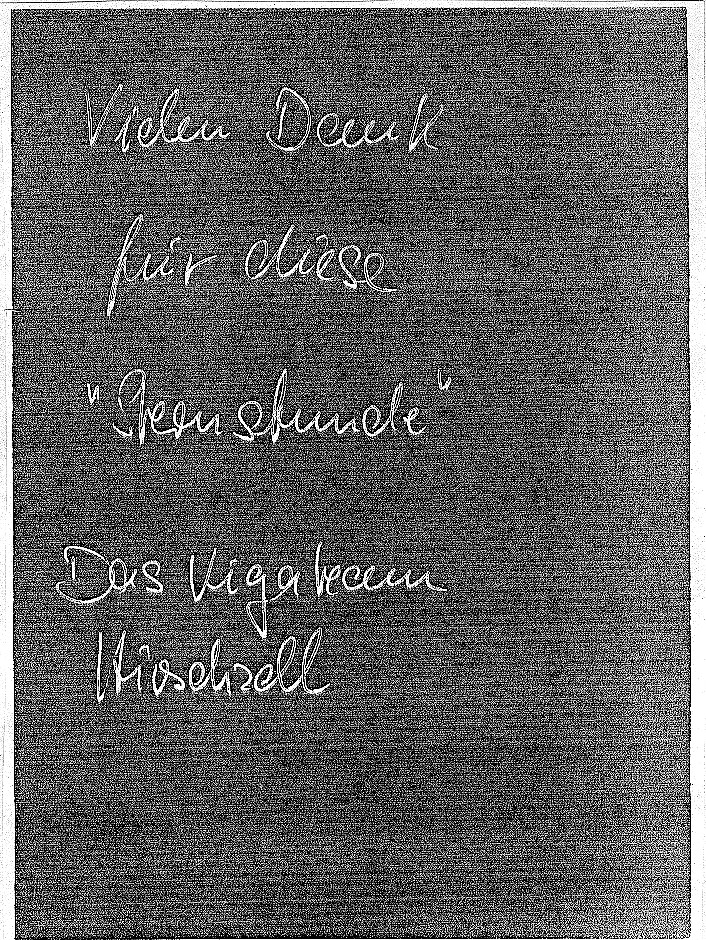 Vielen Dank
für diese
"Sternstunde"
Das Kigateam
Hirschzell